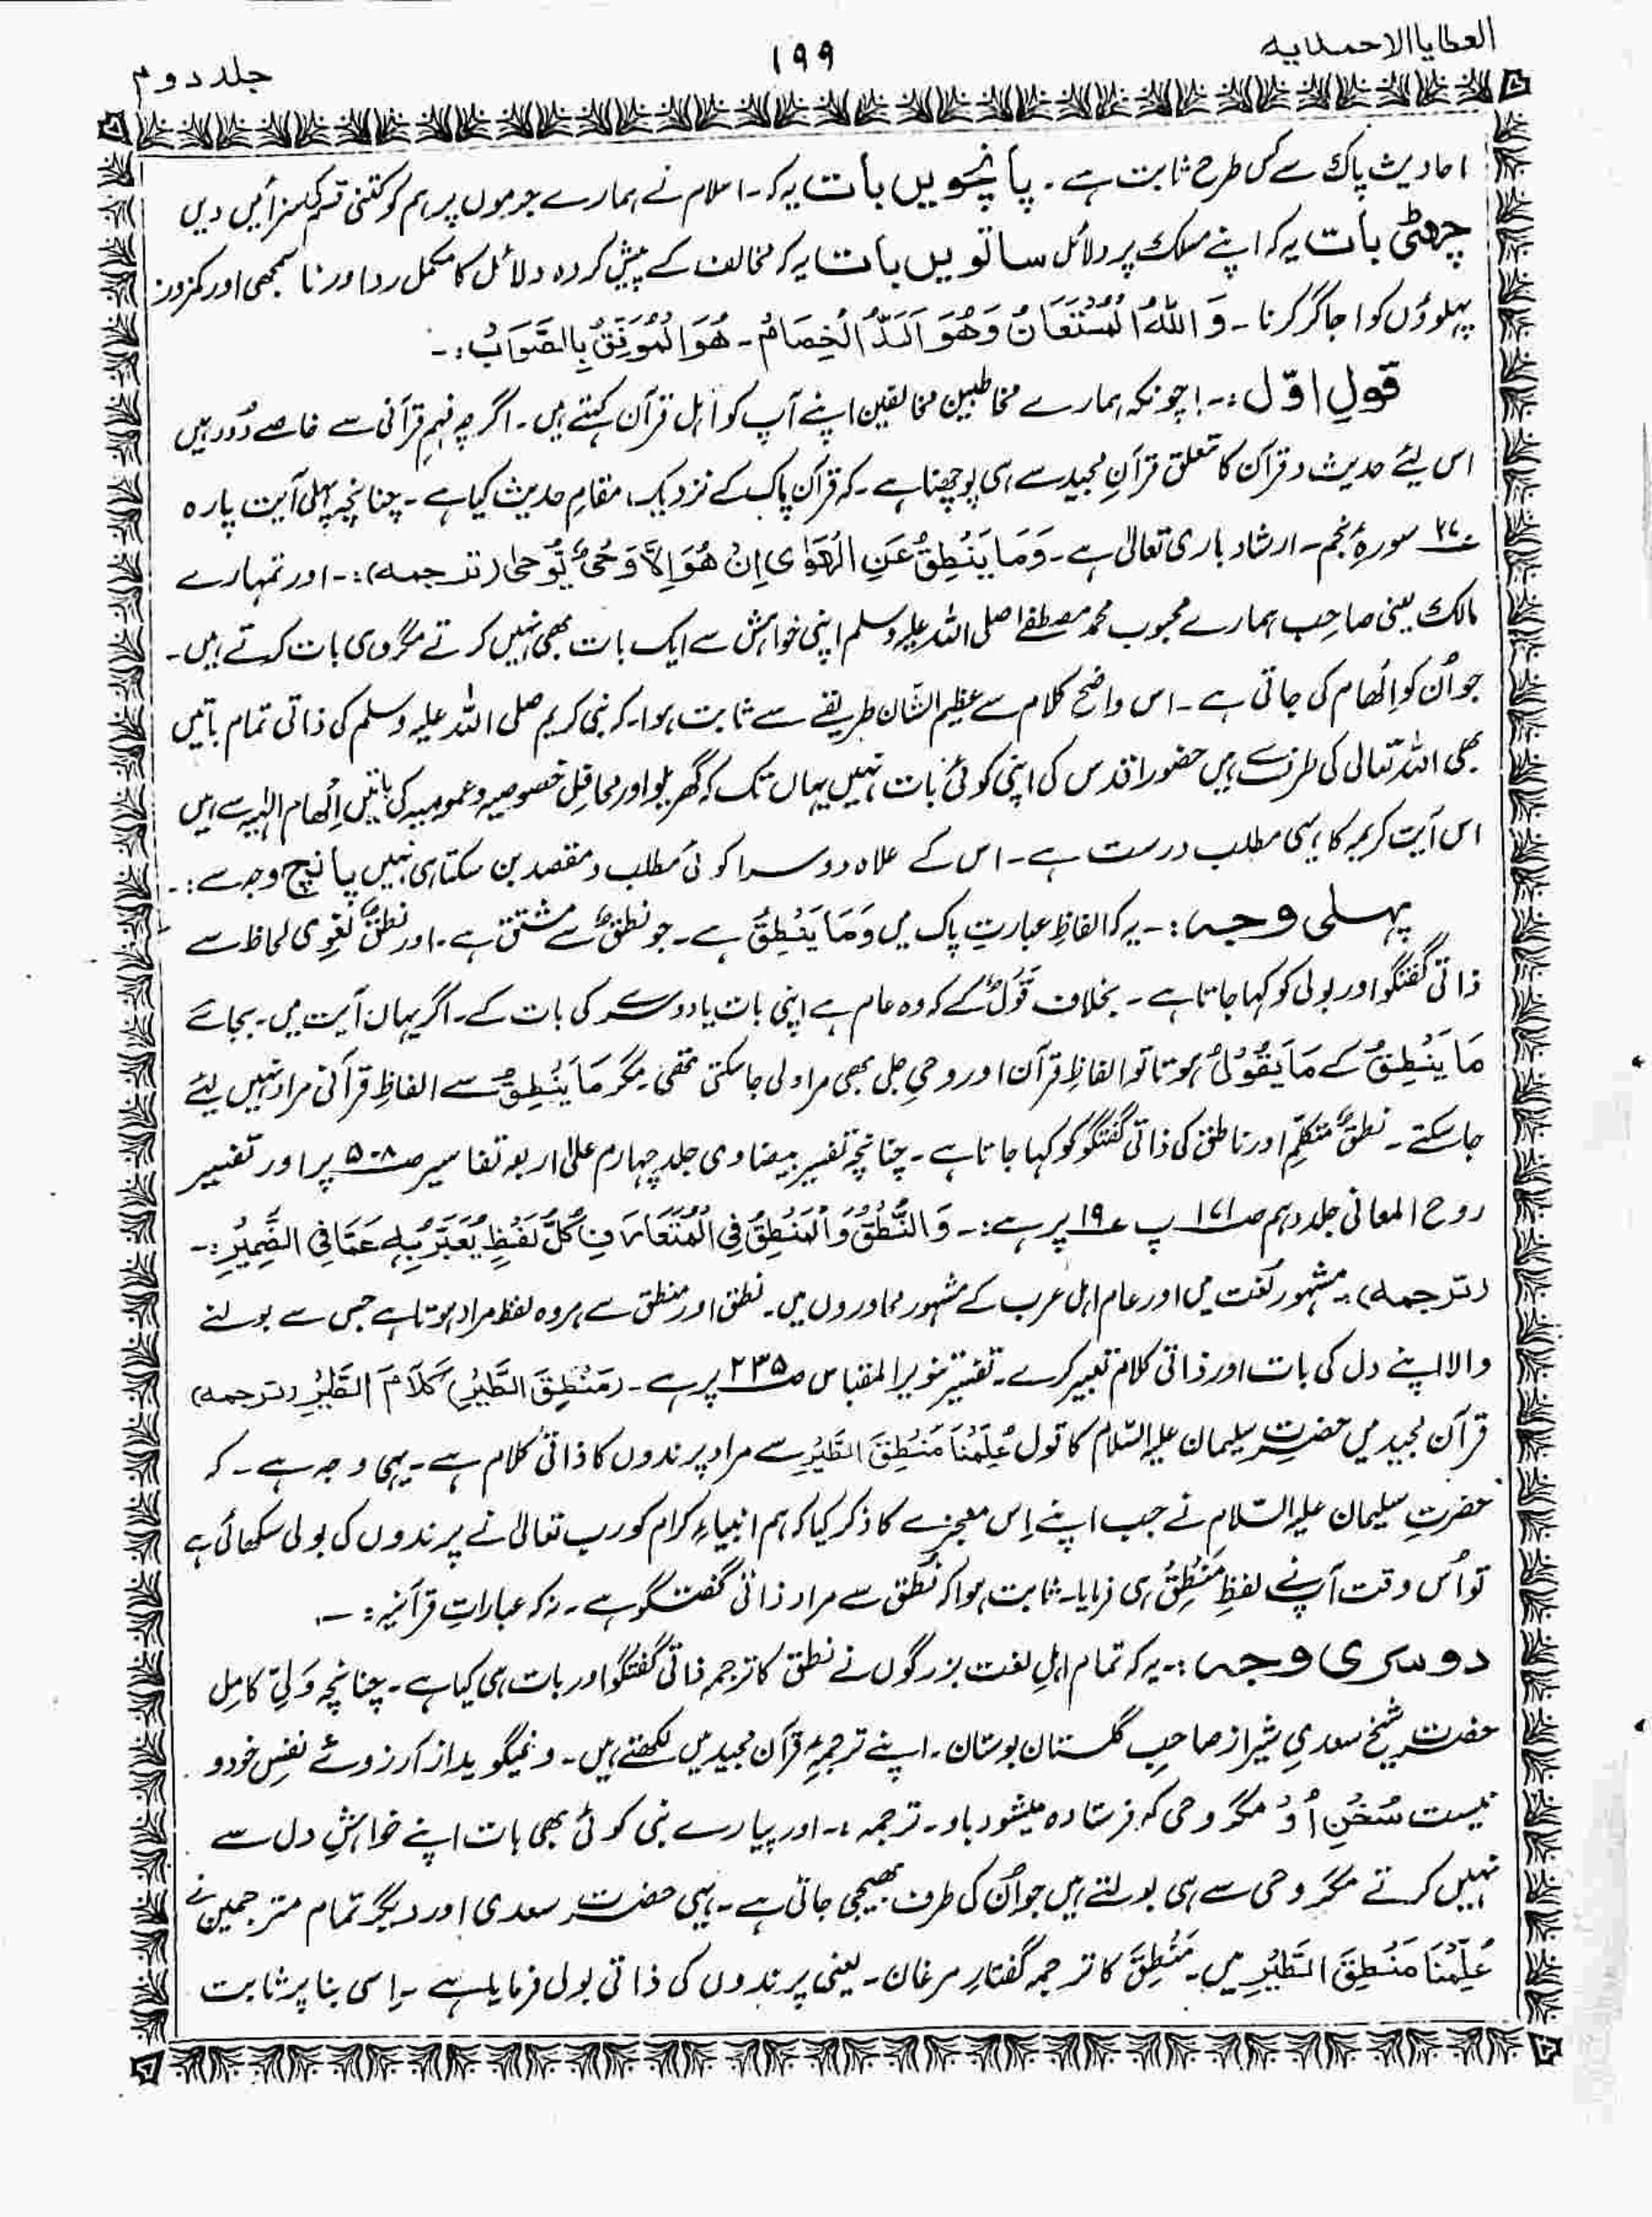 العطایا الاحمدیہ
۱۹۹
جلد دوم
احادیث پاک سے کس طرح ثابت ہے۔ پانچویں بات یہ کہ۔ اسلام نے ہمارے جرموں پر ہم کو کتنی قسم کی سزائیں دیں
چھٹی بات یہ کہ اپنے مسلک پر دلائل ساتویں بات یہ کہ مخالف کے پیش کردہ دلائل کا مکمل رد اور نا سمجھی اور کمزور
پہلوؤں کو اجاگر کرنا۔ وَاللّٰهُ الْمُسْتَعَانُ وَهُوَ اَلَدُّ الْخِصَامُ۔ هُوَ الْمُوَفِّقُ بِالصَّوَابُ:۔
قولِ اوّل:۔! چونکہ ہمارے مخاطبین مخالفین اپنے آپ کو اہل قرآن کہتے ہیں۔ اگرچہ فہمِ قرآنی سے خاصے دُور ہیں
اس لیئے حدیث و قرآن کا تعلق قرآنِ مجید سے ہی پوچھنا ہے۔ کہ قرآن پاک کے نزدیک، مقامِ حدیث کیا ہے۔ چنانچہ پہلی آیت پارہ
۲۷ سورۂ نجم۔ ارشاد باری تعالیٰ ہے۔ وَمَا يَنْطِقُ عَنِ الْهَوٰى اِنْ هُوَ اِلَّا وَحْىٌ يُّوْحٰى (ترجمہ):۔ اور تمہارے
مالک یعنی صاحِب ہمارے محبوب محمد مصطفےٰ صلی اللہ علیہ وسلم اپنی خواہش سے ایک بات بھی نہیں کرتے مگر وہی بات کرتے ہیں۔
جو اُن کو اِلْھام کی جاتی ہے۔ اس واضح کلام سے عظیم الشّان طریقے سے ثابت ہوا۔ کہ نبی کریم صلی اللہ علیہ وسلم کی ذاتی تمام باتیں
بھی اللہ تعالی کی طرف سے ہیں حضور اقدس کی اپنی کوئی بات نہیں یہاں تک کہ گھریلو اور محافِل خصوصیہ و عمومیہ کی باتیں اِلْھام الٰہیہ سے ہیں
اس آیت کریمہ کا یہی مطلب درست ہے۔ اس کے علاہ دوسرا کوئی مطلب و مقصد بن سکتا ہی نہیں پانچ وجہ سے:۔
پہلی وجہ:۔ یہ کہ الفاظِ عبارتِ پاک میں وَمَا يَنْطِقُ ہے۔ جو نطقٌ سے مشتق ہے۔ اور نطقٌ لغوی لحاظ سے
ذاتی گفتگو اور بولی کو کہا جاتا ہے۔ بخلاف قَوْلٌ کے کہ وہ عام ہے اپنی بات یا دوسرے کی بات کے۔ اگر یہاں آیت میں۔ بجائے
مَا يَنْطِقُ کے مَا يَقُوْلُ ہوتا تو الفاظِ قرآن اور وحیِ جلی بھی مراد لی جا سکتی تھی۔ مگر مَا يَنْطِقُ سے الفاظِ قرآنی مراد نہیں لئے
جا سکتے۔ نطقٌ متکلِّم اور ناطق کی ذاتی گفتگو کو کہا جاتا ہے۔ چنانچہ تفسیر بیضاوی جلد چہارم علیٰ اربعہ تفاسیر صـ ۵۰۸ پر اور تفسیر
روح المعانی جلد دہم صـ ۱۷۱ پ ع ۱۹ پر ہے:۔ وَالنُّطْقُ وَالْمَنْطِقُ فِى الْمُتَعَارَفِ كُلُّ لَفْظٍ يُعَبَّرُ بِهٖ عَمَّا فِى الضَّمِيْرِ:۔
(ترجمہ)۔ مشہور لغت میں اور عام اہل عرب کے مشہور محاوروں میں۔ نطق اور منطق سے ہر وہ لفظ مراد ہوتا ہے جس سے بولنے
والا اپنے دل کی بات اور ذاتی کلام تعبیر کرے۔ تفسیر تنویر المقباس صـ ۲۳۵ پر ہے۔ (مَنْطِقَ الطَّيْرِ) كَلَامَ الطَّيْرِ (ترجمہ)
قرآن مجید میں حضرت سلیمان علیہ السّلام کا قول عُلِّمْنَا مَنْطِقَ الطَّيْرِ سے مراد پرندوں کا ذاتی کلام ہے۔ یہی وجہ ہے۔ کہ
حضرتِ سلیمان علیہ السّلام نے جب اپنے اِس معجزے کا ذکر کیا کہ ہم انبیاءِ کرام کو رب تعالیٰ نے پرندوں کی بولی سکھائی ہے
تو اُس وقت آپ نے لفظِ مَنْطِقُ ہی فرمایا۔ ثابت ہوا کہ نُطْق سے مراد ذاتی گفتگو ہے۔ نہ کہ عباراتِ قرآنیہ:۔
دوسری وجہ:۔ یہ کہ تمام اہلِ لغت بزرگوں نے نطق کا ترجمہ ذاتی گفتگو اور بات ہی کیا ہے۔ چنانچہ وَلِیِّ کامِل
حضرت شیخ سعدیِ شیراز صاحبِ گلستان بوستان۔ اپنے ترجمۂ قرآن مجید میں لکھتے ہیں۔ و نمیگوید از آرزوئے نفسِ خود و
نیست سُخنِ اُوْ مگر وحی کہ فرستادہ میشود باو۔ ترجمہ:۔ اور پیارے نبی کوئی بھی بات اپنے خواہشِ دل سے
نہیں کرتے مگر وحی سے ہی بولتے ہیں جو اُن کی طرف بھیجی جاتی ہے۔ یہی حضرت سعدی اور دیگر تمام مترجمین نے
عُلِّمْنَا مَنْطِقَ الطَّيْرِ میں۔ مَنْطِقَ کا ترجمہ گفتارِ مرغان۔ یعنی پرندوں کی ذاتی بولی فرمایا ہے۔ اِسی بنا پر ثابت